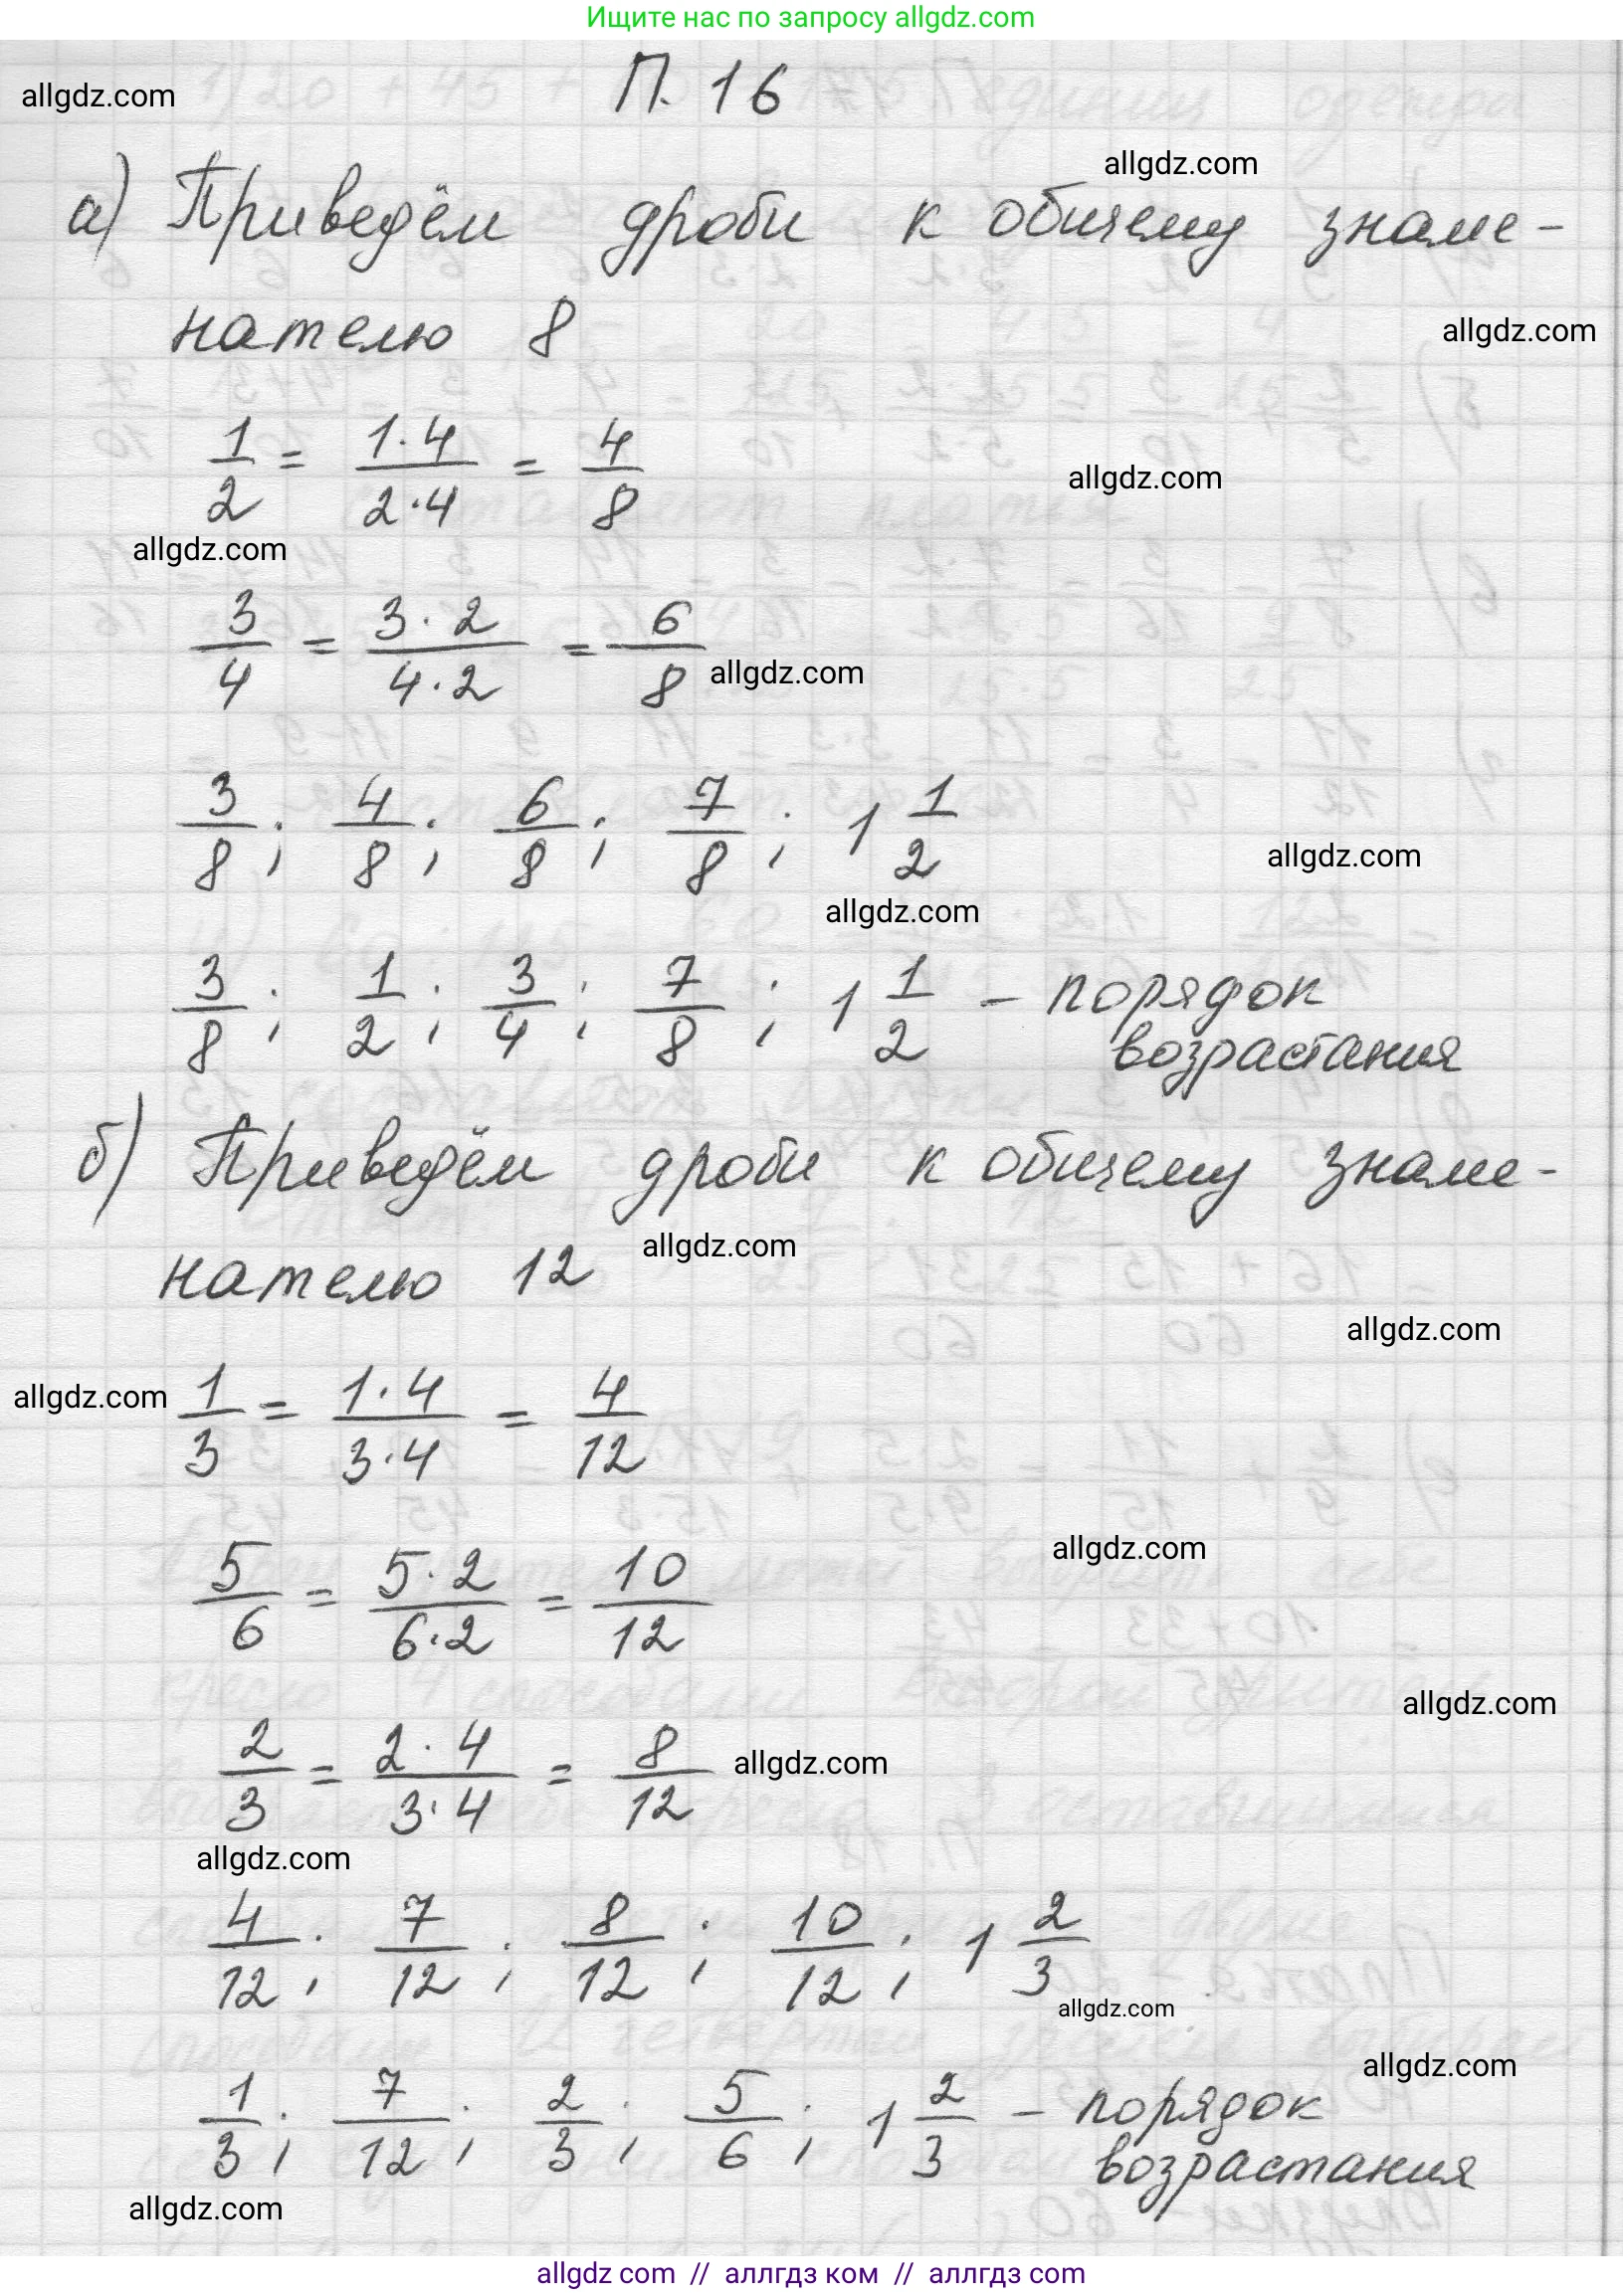 Ищите нас по запросу allgdz.com
allgdz.com
П. 16
allgdz.com
а) Приведём дроби к общему знаме-
нателю 8
allgdz.com
1/2 = 1·4/2·4 = 4/8
allgdz.com
allgdz.com
3/4 = 3·2/4·2 = 6/8
allgdz.com
3/8; 4/8; 6/8; 7/8; 1 1/2
allgdz.com
allgdz.com
3/8; 1/2; 3/4; 7/8; 1 1/2 – порядок
возрастания
б) Приведём дроби к общему знаме-
allgdz.com
нателю 12
allgdz.com
allgdz.com
1/3 = 1·4/3·4 = 4/12
allgdz.com
5/6 = 5·2/6·2 = 10/12
allgdz.com
2/3 = 2·4/3·4 = 8/12
allgdz.com
allgdz.com
4/12; 7/12; 8/12; 10/12; 1 2/3
allgdz.com
allgdz.com
1/3; 7/12; 2/3; 5/6; 1 2/3 – порядок
возрастания
allgdz.com
allgdz com // аллгдз ком // аллгдз com